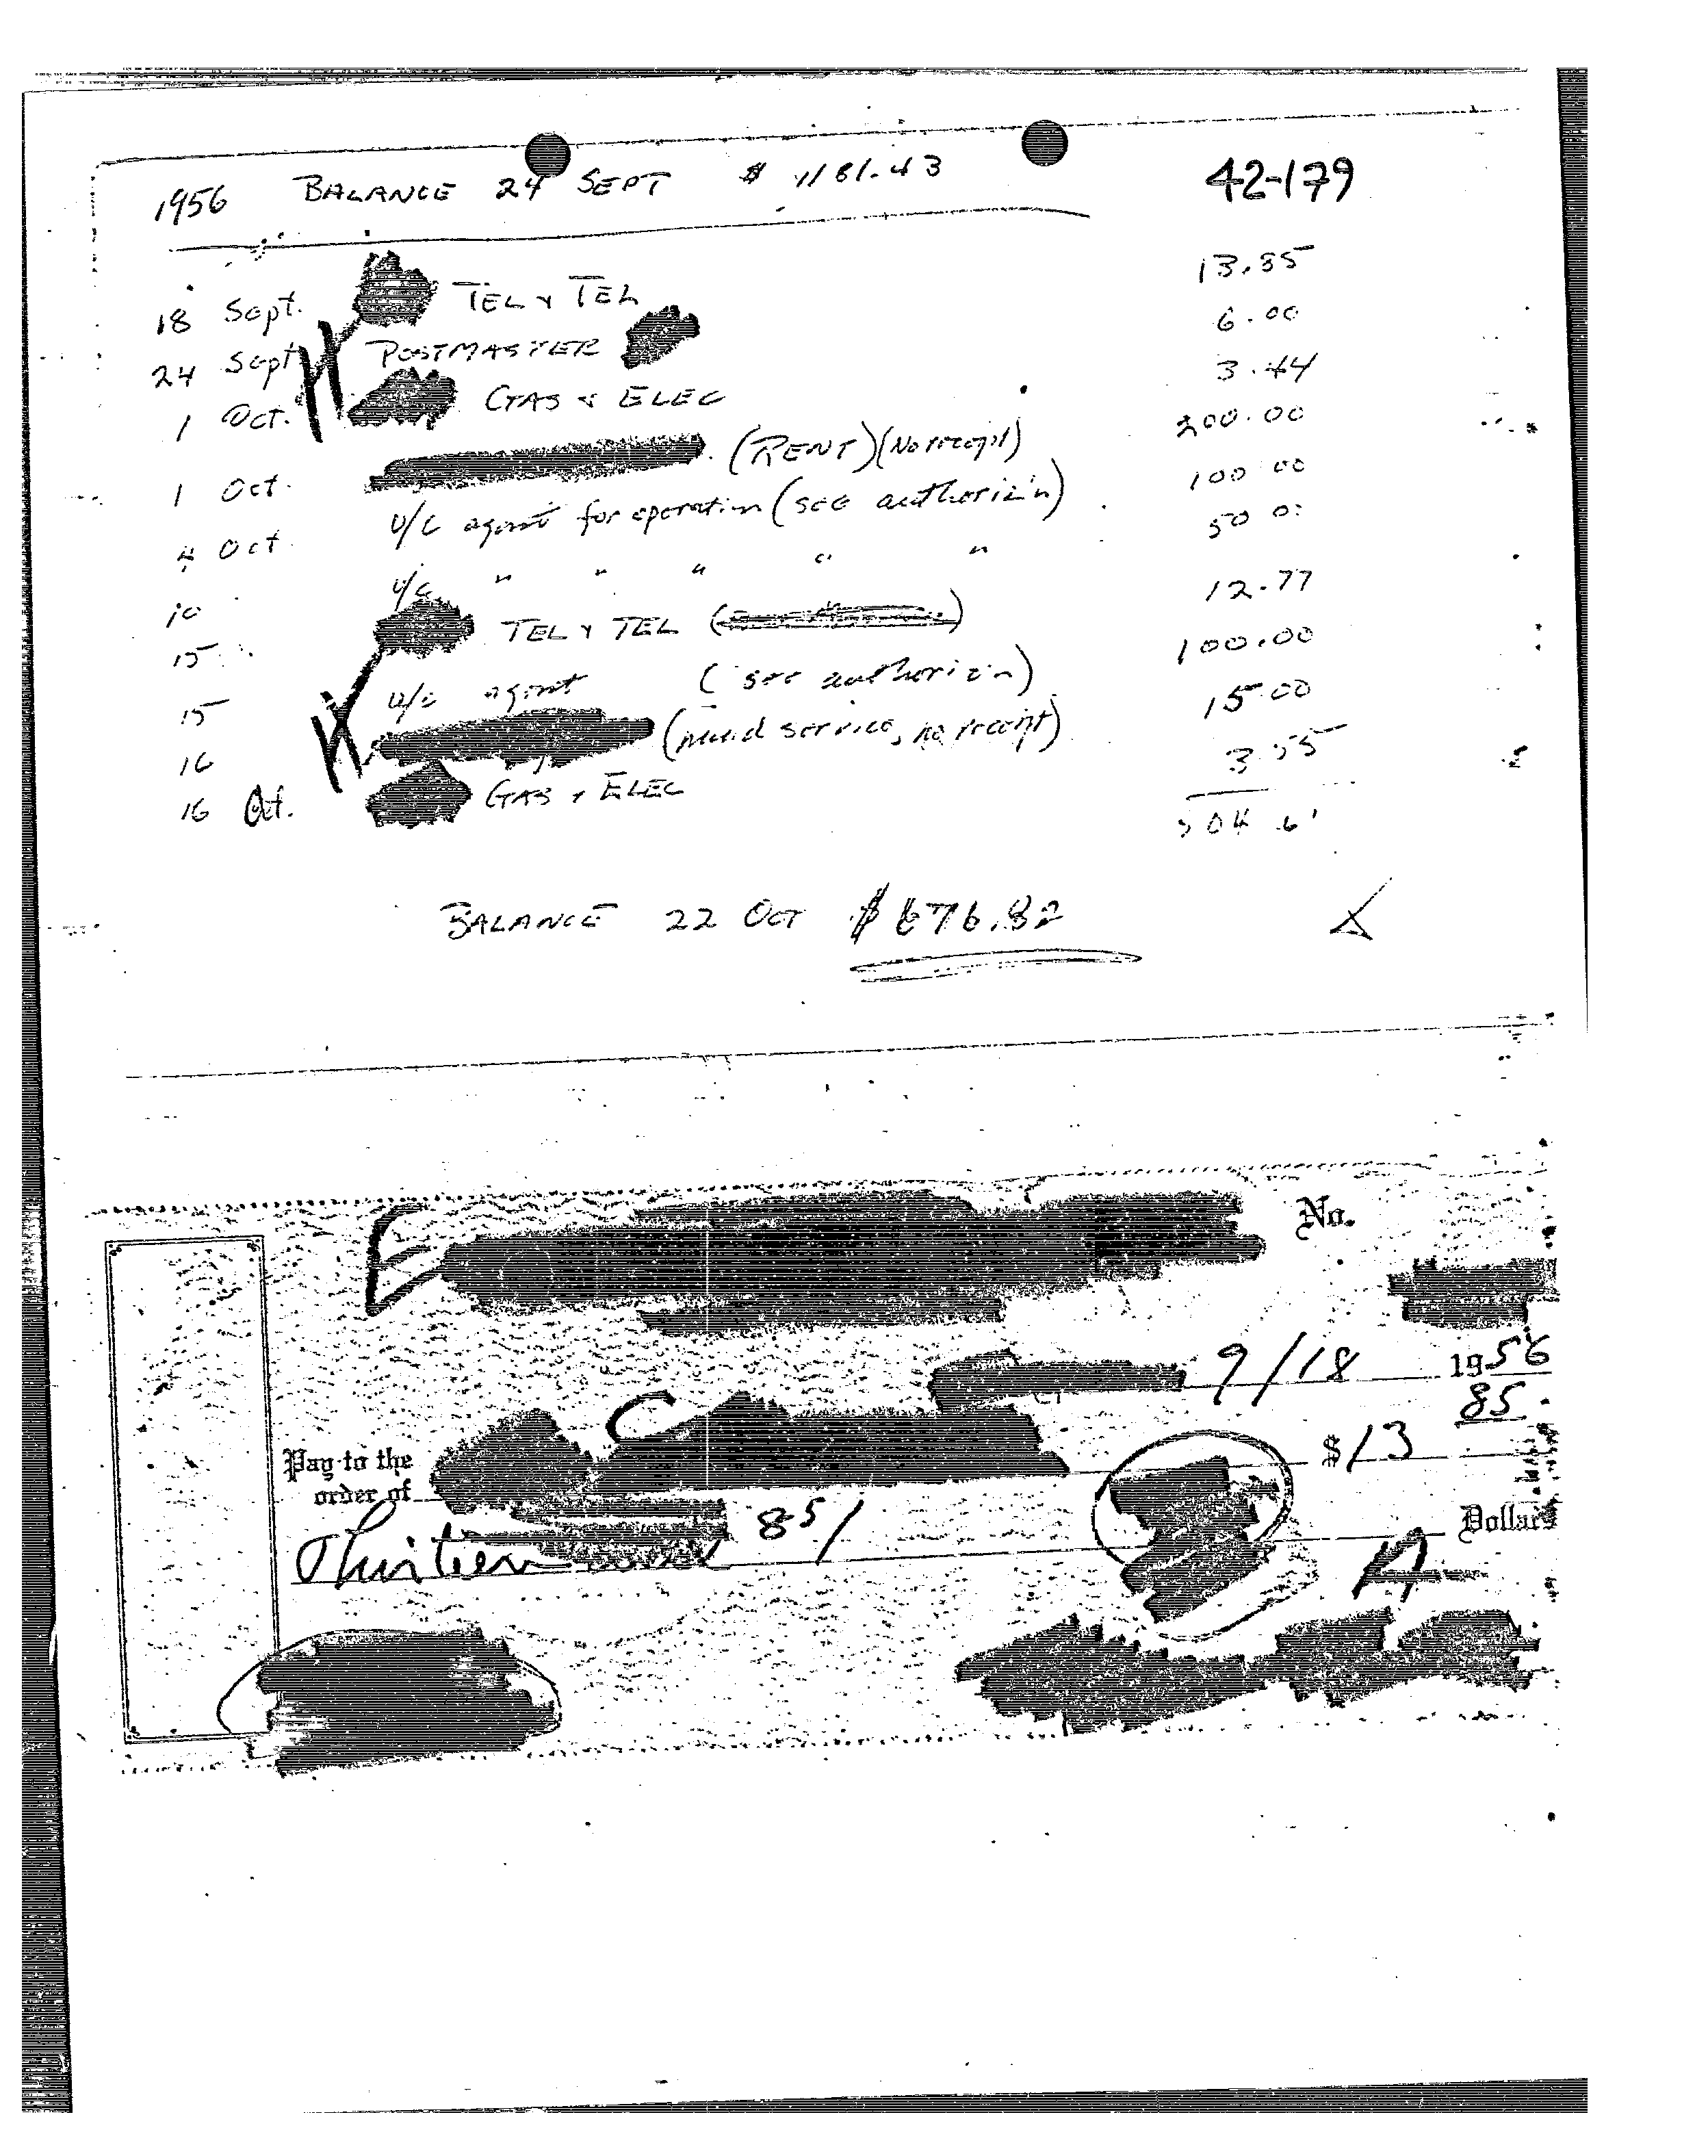 1956 BALANCE 24 SEPT $ 1181.43 42-179
18 Sept. TEL & TEL 13.85
24 Sept POSTMASTER 6.00
1 Oct. GAS & ELEC 3.44
1 Oct. (RENT) (No receipt) 200.00
4 Oct. U/C agent for operation (see authoriz'n) 100 00
10 U/C " " " " " 50 0
15 TEL & TEL 12.77
15 u/c agent (see authoriz'n) 100.00
16 (maid service, no receipt) 15.00
16 Oct. GAS & ELEC 3.55
504 61
BALANCE 22 OCT $676.82
No.
9/18 1956
Pay to the order of $13 85
Thirteen and 85/ Dollars